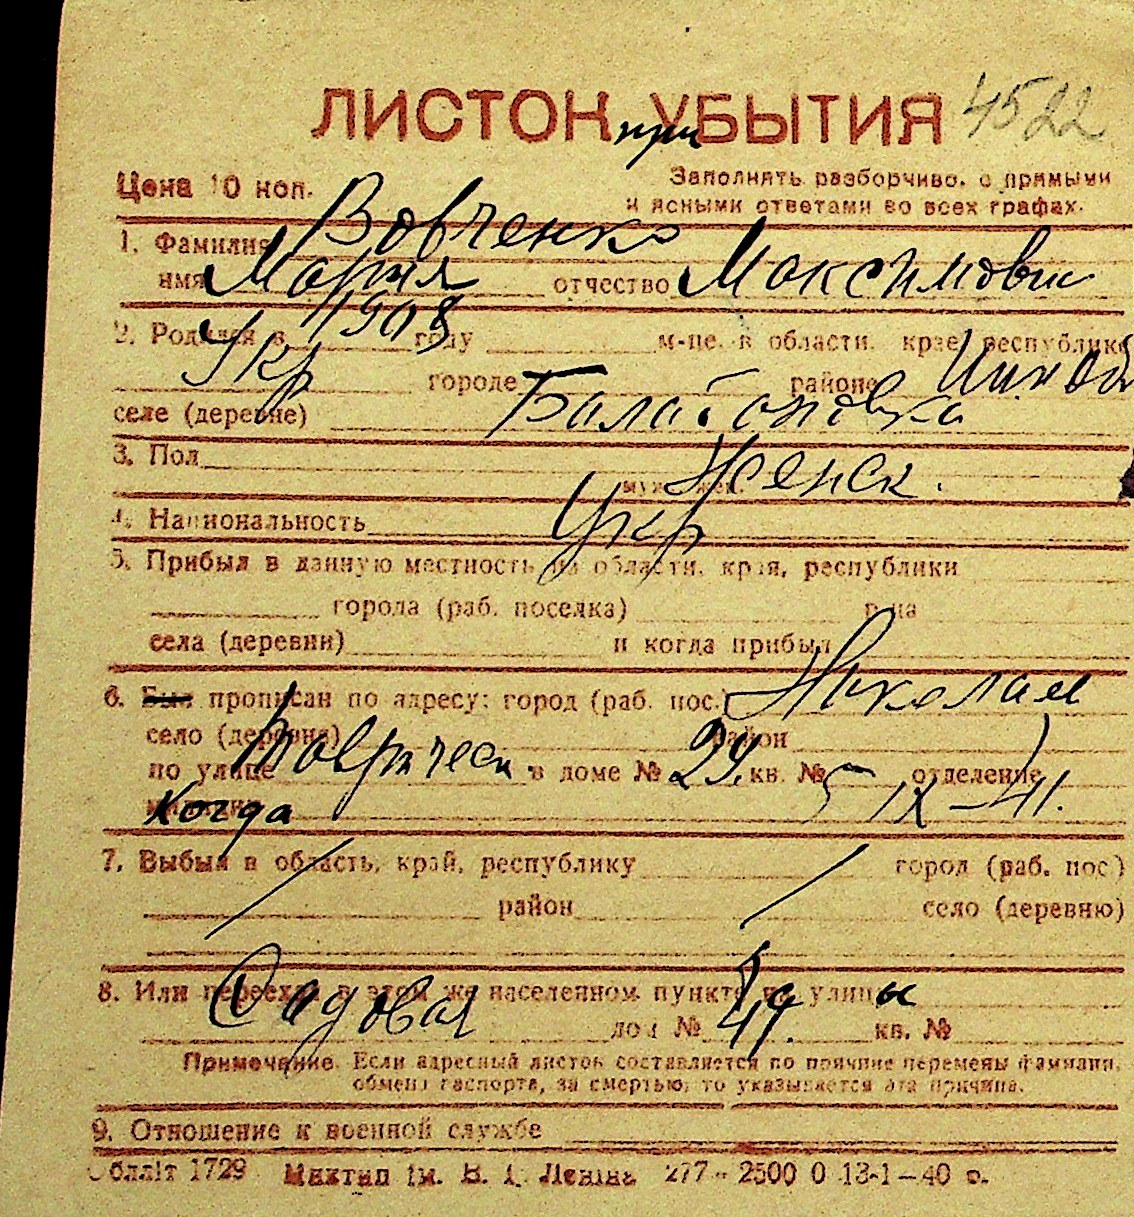 ЛИСТОК при УБЫТИЯ 4522
Цена 10 коп. Заполнять разборчиво, с прямыми
и ясными ответами во всех графах.
1. Фамилия Вовченко
имя Мария отчество Максимовн
2. Родился в 1908 году м-це в области, крае, республике
Укр городе районе
селе (деревне) Балабановка
3. Пол Женск.
муж. жен.
4. Национальность Укр
5. Прибыл в данную местность из области, края, республики
города (раб. поселка) р-на
села (деревни) и когда прибыл
6. Был прописан по адресу: город (раб. пос.) Николаев
село (деревня) район
по улице Таврическ в доме № 29. кв. № отделение
Когда 5 IX-41.
7. Выбыл в область, край, республику город (раб. пос.)
район село (деревню)
8. Или переехал в этом же населенном пункте на улицы
Садовая дом № кв. №
Примечание. Если адресный листок составляется по причине перемены фамилии,
обмена паспорта, за смертью, то указывается эта причина.
9. Отношение к военной службе
Обліт 1729 Миктип ім. В. І. Леніна 277 - 2500 0 13-1-40 р.